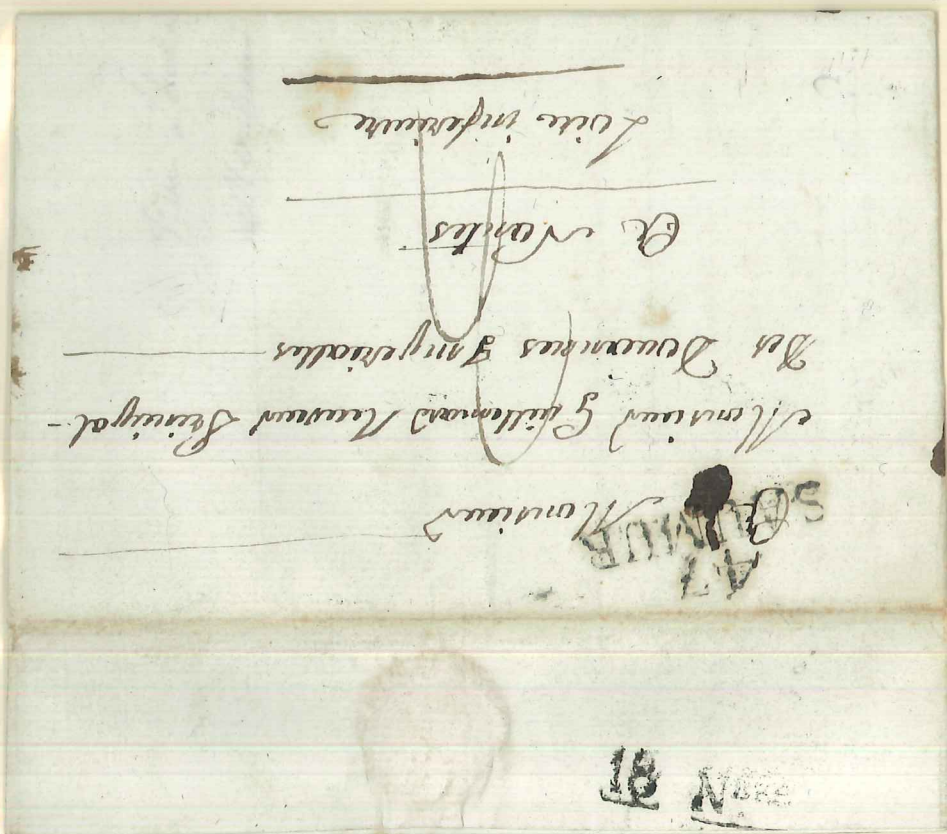 47
SAUMUR
A Monsieur
Monsieur Guillemard Receveur Principal
Des Douannes Imperiales
A Nantes
Loire inferieure
18 Nbre